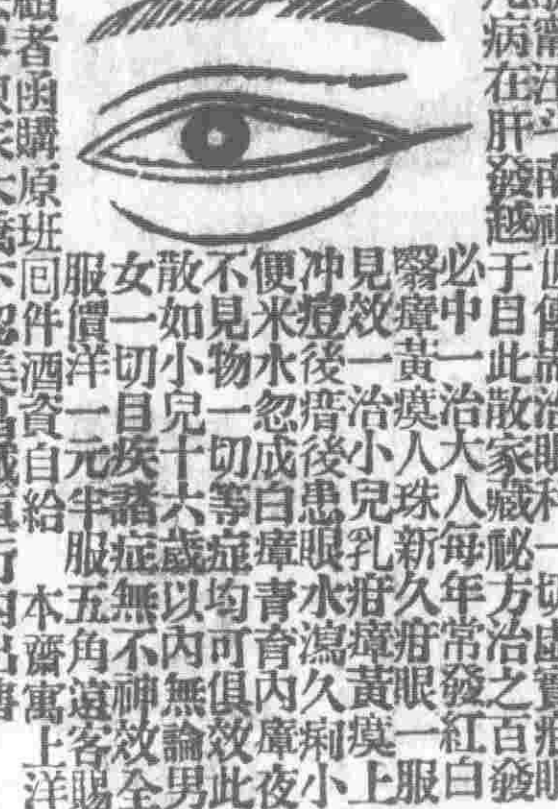 治眼科一切
病在肝發越于目此散家藏秘方治之百發
必中一治大人每年常發紅白
翳瘴黃瘼人珠新久疳眼一服
見效一治小兒乳疳瘴黃瘼上
冲痘後瘖後患眼水瀉久痢小
便米水忽成白瘴青育內瘴夜
不見物一切等症均可俱效此
散如小兒十六歲以內無論男
女一切目疾諸症無不神效全
服價洋一元半服五角遠客賜
顧者函購原班回件酒資自給　本齋寓上洋